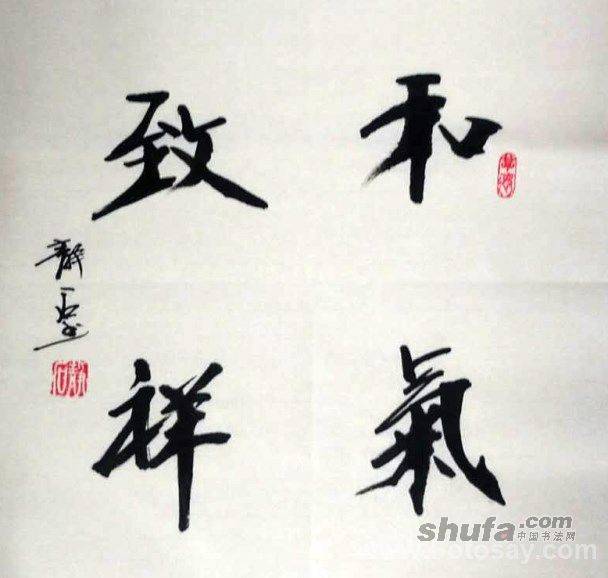 和氣
致祥
靜石
shufa.com
中国书法网
photosay.com